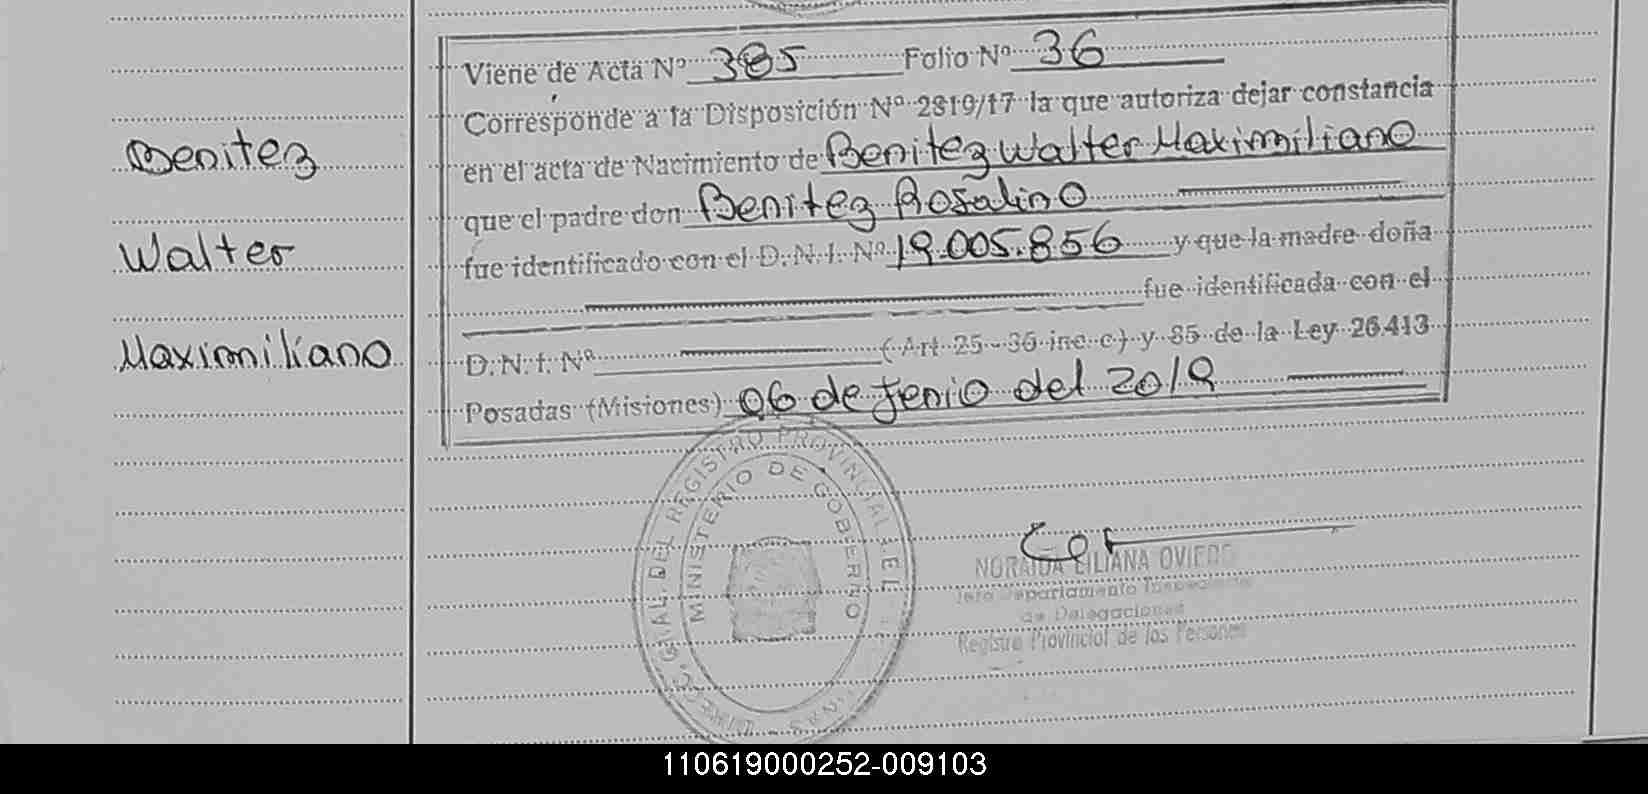 Benitez
Walter
Maximiliano
Viene de Acta Nº 385 Folio Nº 36
Corresponde a la Disposición Nº 2819/17 la que autoriza dejar constancia
en el acta de Nacimiento de Benitez Walter Maximiliano
que el padre don Benitez Rosalino
fue identificado con el D.N.I. Nº 19.005.856 y que la madre doña
fue identificada con el
D.N.I. Nº (Art 25-36 inc c) y 85 de la Ley 26.413
Posadas (Misiones) 06 de Junio del 2019
DIREC. GRAL. DEL REGISTRO PROVINCIAL DE L
MINISTERIO DE GOBIERNO
NORAIDA LILIANA OVIEDO
Jefe Departamento
de Delegaciones
Registro Provincial de las Personas
110619000252-009103